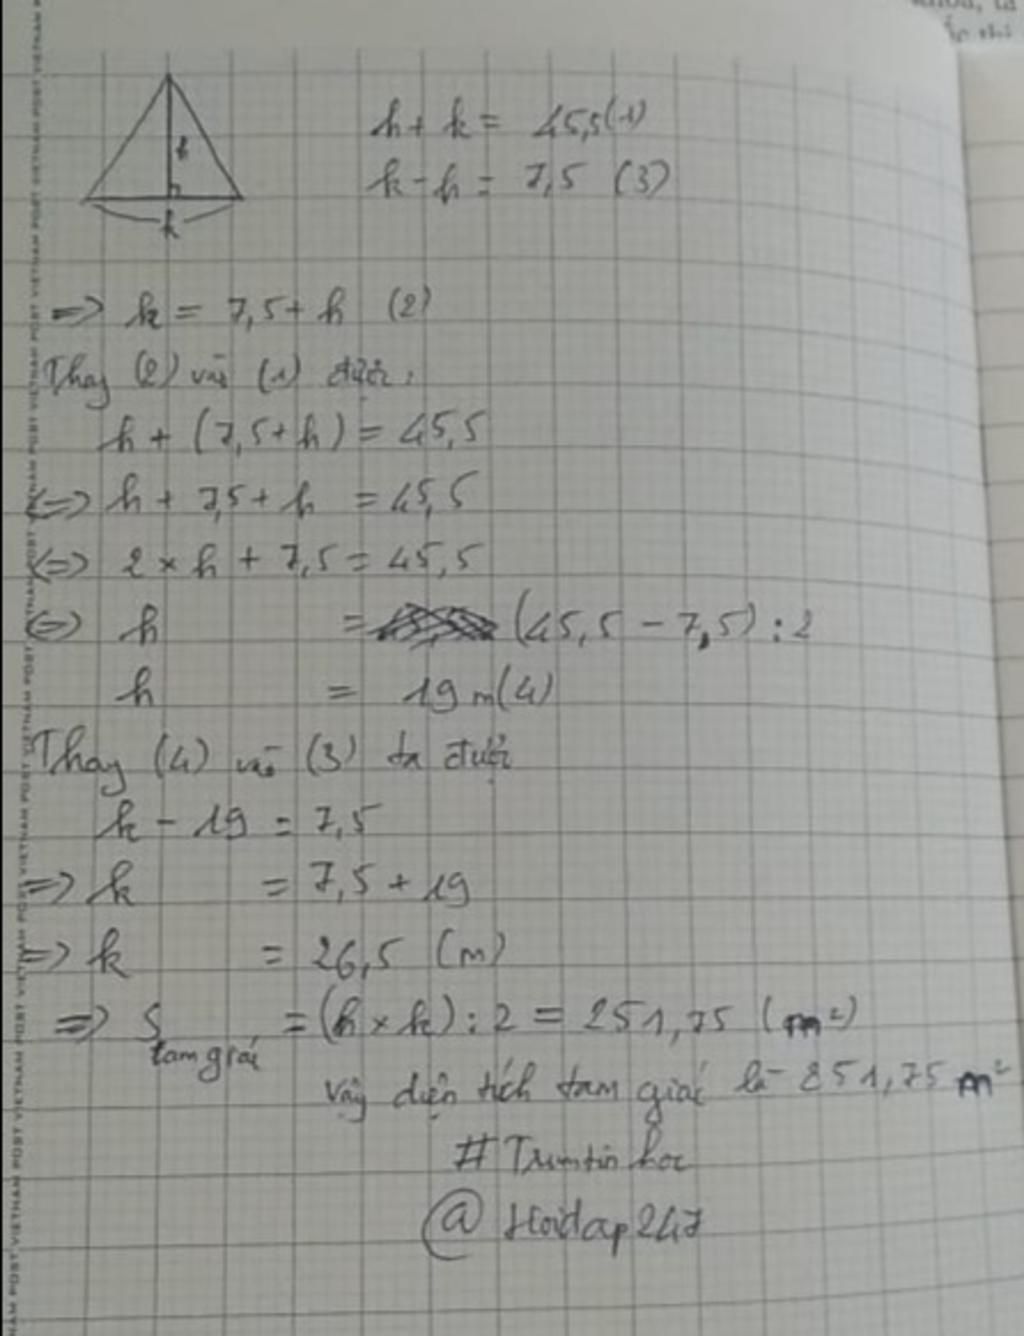 h
k
h + k = 45,5 (1)
k - h = 7,5 (3)
=> k = 7,5 + h (2)
Thay (2) vào (1) được:
h + (7,5 + h) = 45,5
<=> h + 7,5 + h = 45,5
<=> 2 × h + 7,5 = 45,5
<=> h = (45,5 - 7,5) : 2
h = 19 m (4)
Thay (4) vào (3) ta được
k - 19 = 7,5
=> k = 7,5 + 19
=> k = 26,5 (m)
=> S tam giác = (h × k) : 2 = 251,75 (m²)
Vậy diện tích tam giác là 251,75 m²
# Trumtinhoc
@ Hoidap247